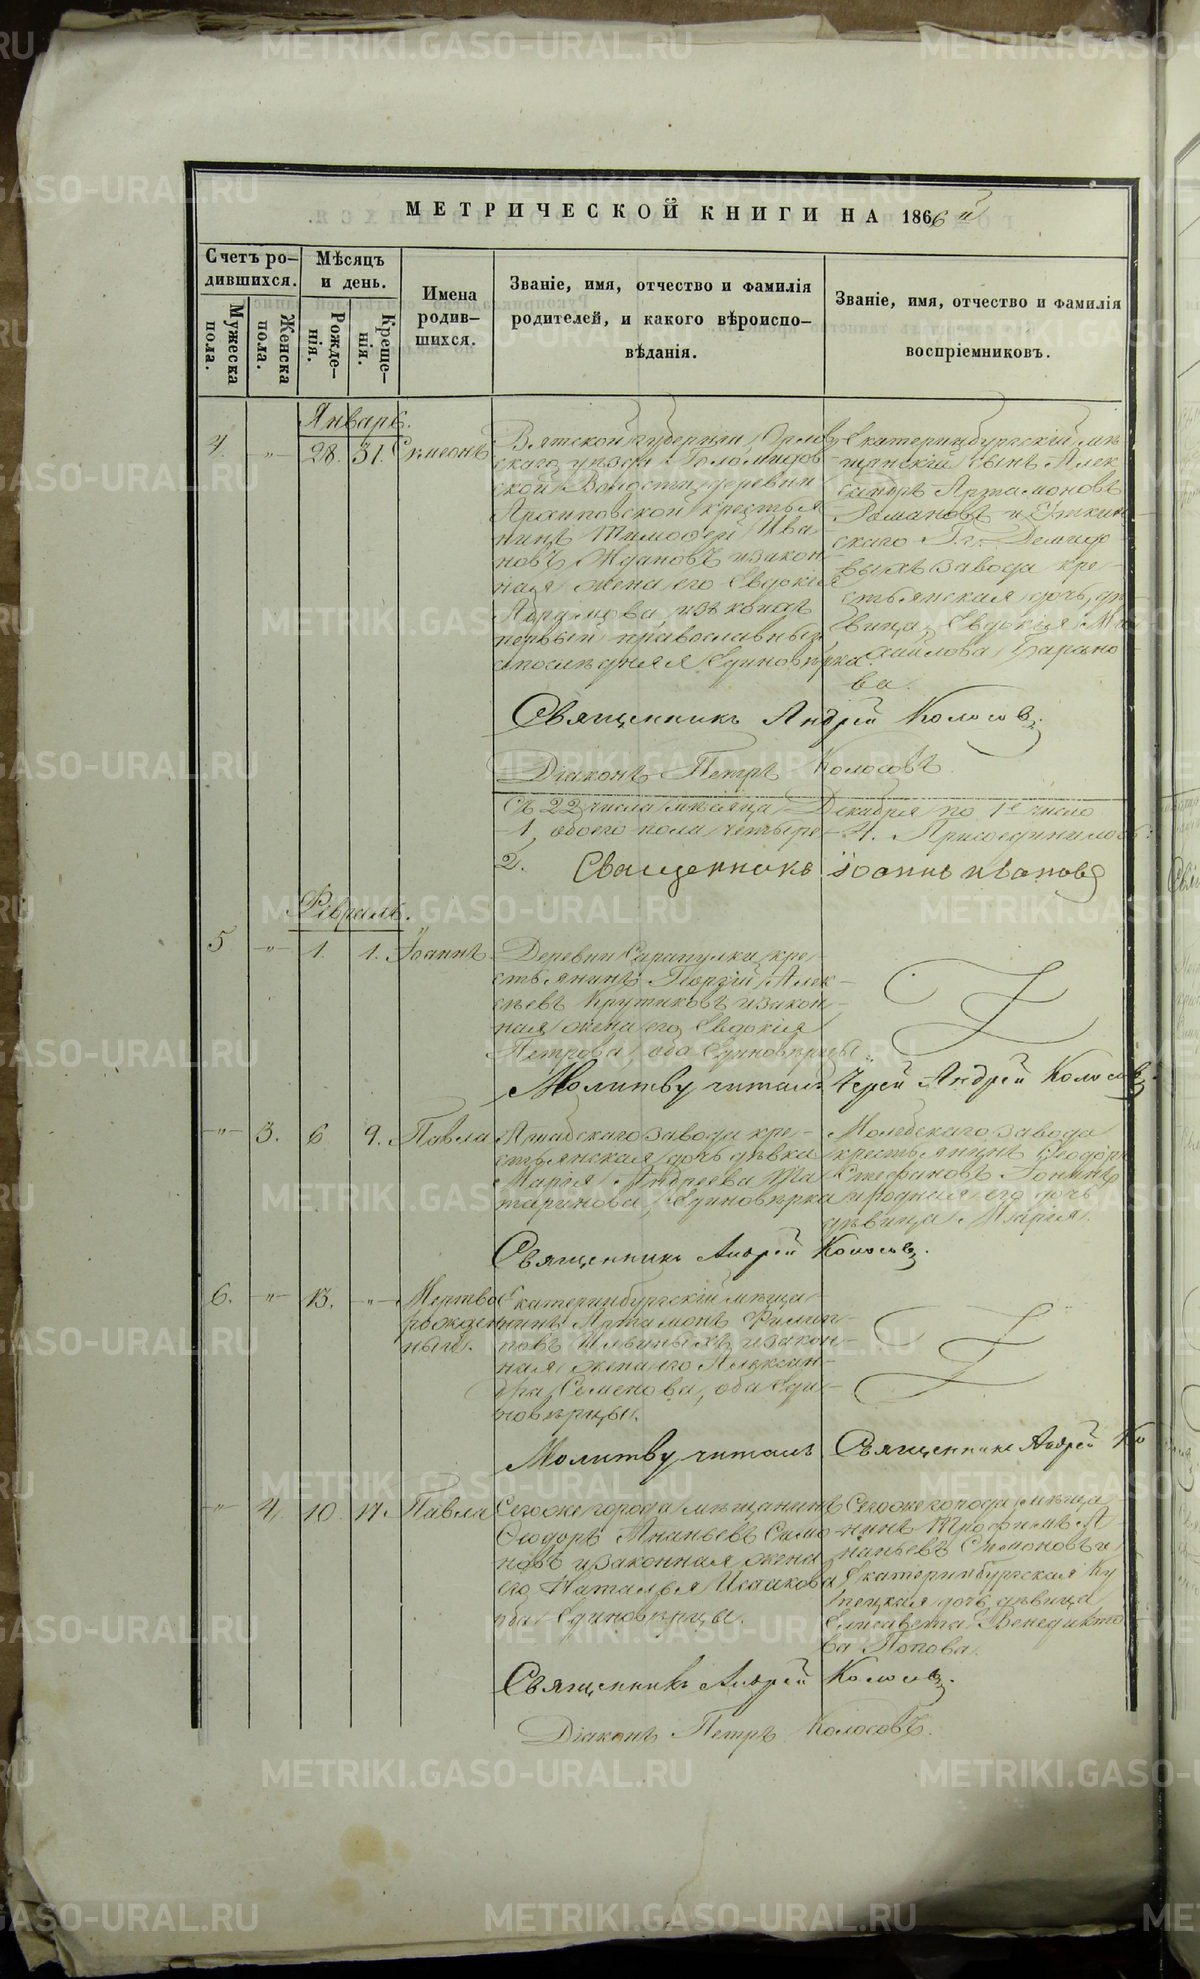 МЕТРИЧЕСКОЙ КНИГИ НА 1866й
Счетъ ро-
дившихся.
Мужеска
пола.
Женска
пола.
Мѣсяцъ
и день.
Рожде-
нія.
Креще-
нія.
Имена
родив-
шихся.
Званіе, имя, отчество и фамилія
родителей, и какого вѣроиспо-
вѣданія.
Званіе, имя, отчество и фамилія
воспріемниковъ.
Январь.
4. " 28. 31. Симеонъ
Вятской губерніи Орлов
скаго уѣзда
ской Волости, деревни
Архиповской крестья
нинъ Тимофей Ива
новъ Ждановъ и закон
ная жена его Евдокія
первый православный,
а послѣдняя Единовѣрка.
Екатеринбургскій мѣ
щанскій сынъ Алек
сандръ Артамоновъ
Романовъ и Уткин
скаго Г.г. Демидо
выхъ завода кре-
стьянская дочь, дѣ
вица, Евдокія Ми
хайлова Барано
ва.
Священникъ Андрей Колосовъ.
Діаконъ Петръ Колосовъ.
Съ 22 числа мѣсяца Декабря по 1е число
1, обоего пола четыре - 4. Присоединилось:
2. Священникъ Іоаннъ Ивановъ
Февраль.
5 " 1. 1. Іоаннъ
Деревни Сарапулки кре-
стьянинъ Георгій Алек-
сѣевъ Крутиковъ и закон-
ная жена его Евдокія
Петрова, оба Единовѣрцы.
Молитву читалъ Іерей Андрей Колосовъ.
" 3. 6 9. Павла
завода кре-
стьянская дочь дѣвка
Марія Андреева Та
таринова, Единовѣрка
Молебскаго завода
крестьянинъ Ѳеодоръ
Стефановъ
и родная его дочь
дѣвица, Марія.
Священникъ Андрей Колосовъ.
6. " 13. " Мертво
рожден
ный.
Екатеринбургскій мѣща-
нинъ Артамонъ Филип-
повъ Ильиныхъ и закон-
ная жена его Алексан-
дра Семенова, оба Еди-
новѣрцы.
Молитву читалъ Священникъ Андрей Ко
" 4. 10. 17. Павла
Сегоже города мѣщанинъ
Ѳеодоръ Ананьевъ Симо
новъ и законная жена
его Наталья Исаакова
оба Единовѣрцы.
Сегоже города мѣща
нинъ Трофимъ А-
наньевъ Симоновъ и
Екатеринбургская Ку
пецкая дочь, дѣвица
Елисавета Венедикто
ва Попова.
Священникъ Андрей Колосовъ.
Діаконъ Петръ Колосовъ.
METRIKI.GASO-URAL.RU